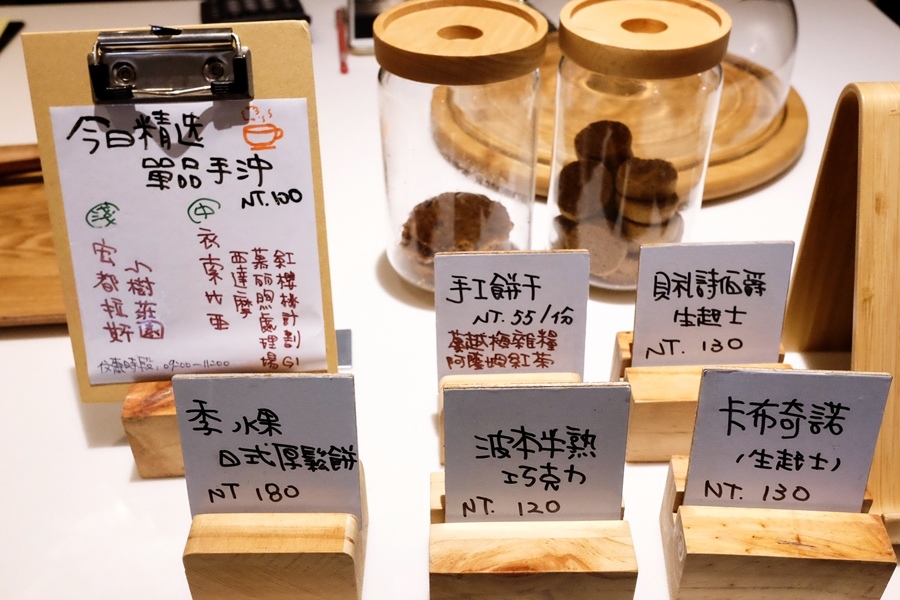 今日精选
單品手沖
NT. 100
淺
宏都拉斯
小樹莊園
中
衣索比亞
西達摩
葉丽
處理場
紅櫻桃計劃
G1
優惠時段: 09:00-11:00
手工餅干
NT. 55/份
蔓越梅雜糧
阿薩姆紅茶
貝礼詩伯爵
生起士
NT. 130
季 水果
日式厚鬆餅
NT 180
波本半熟
巧克力
NT. 120
卡布奇諾
(生起士)
NT. 130